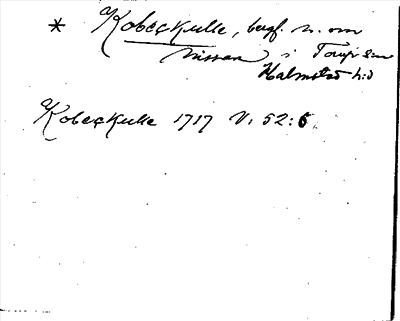 * Kobeçkulle, bergf. n. om
Nissan i Torup sn
Halmstad hd
Kobeçkulle 1717 V: 52:6